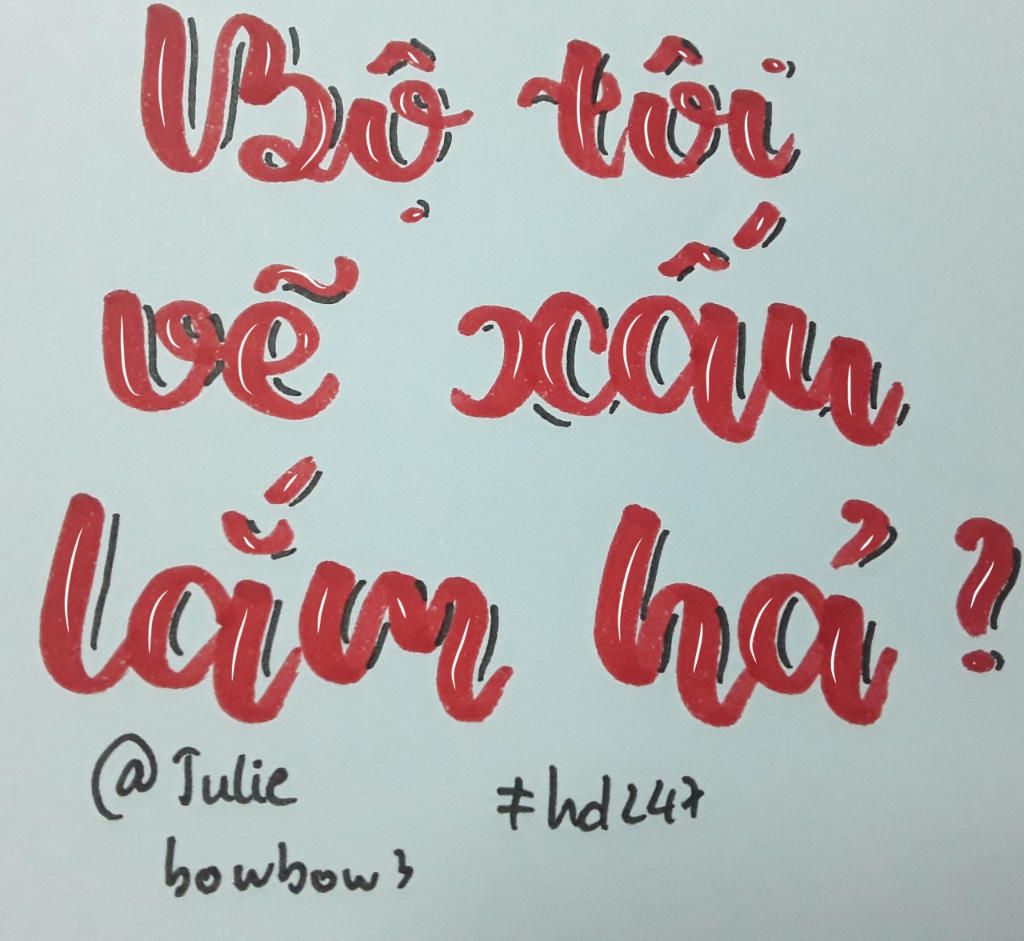 Bộ tôi
vẽ xấu
lắm hả?
@Julie #hd247
bowbow3